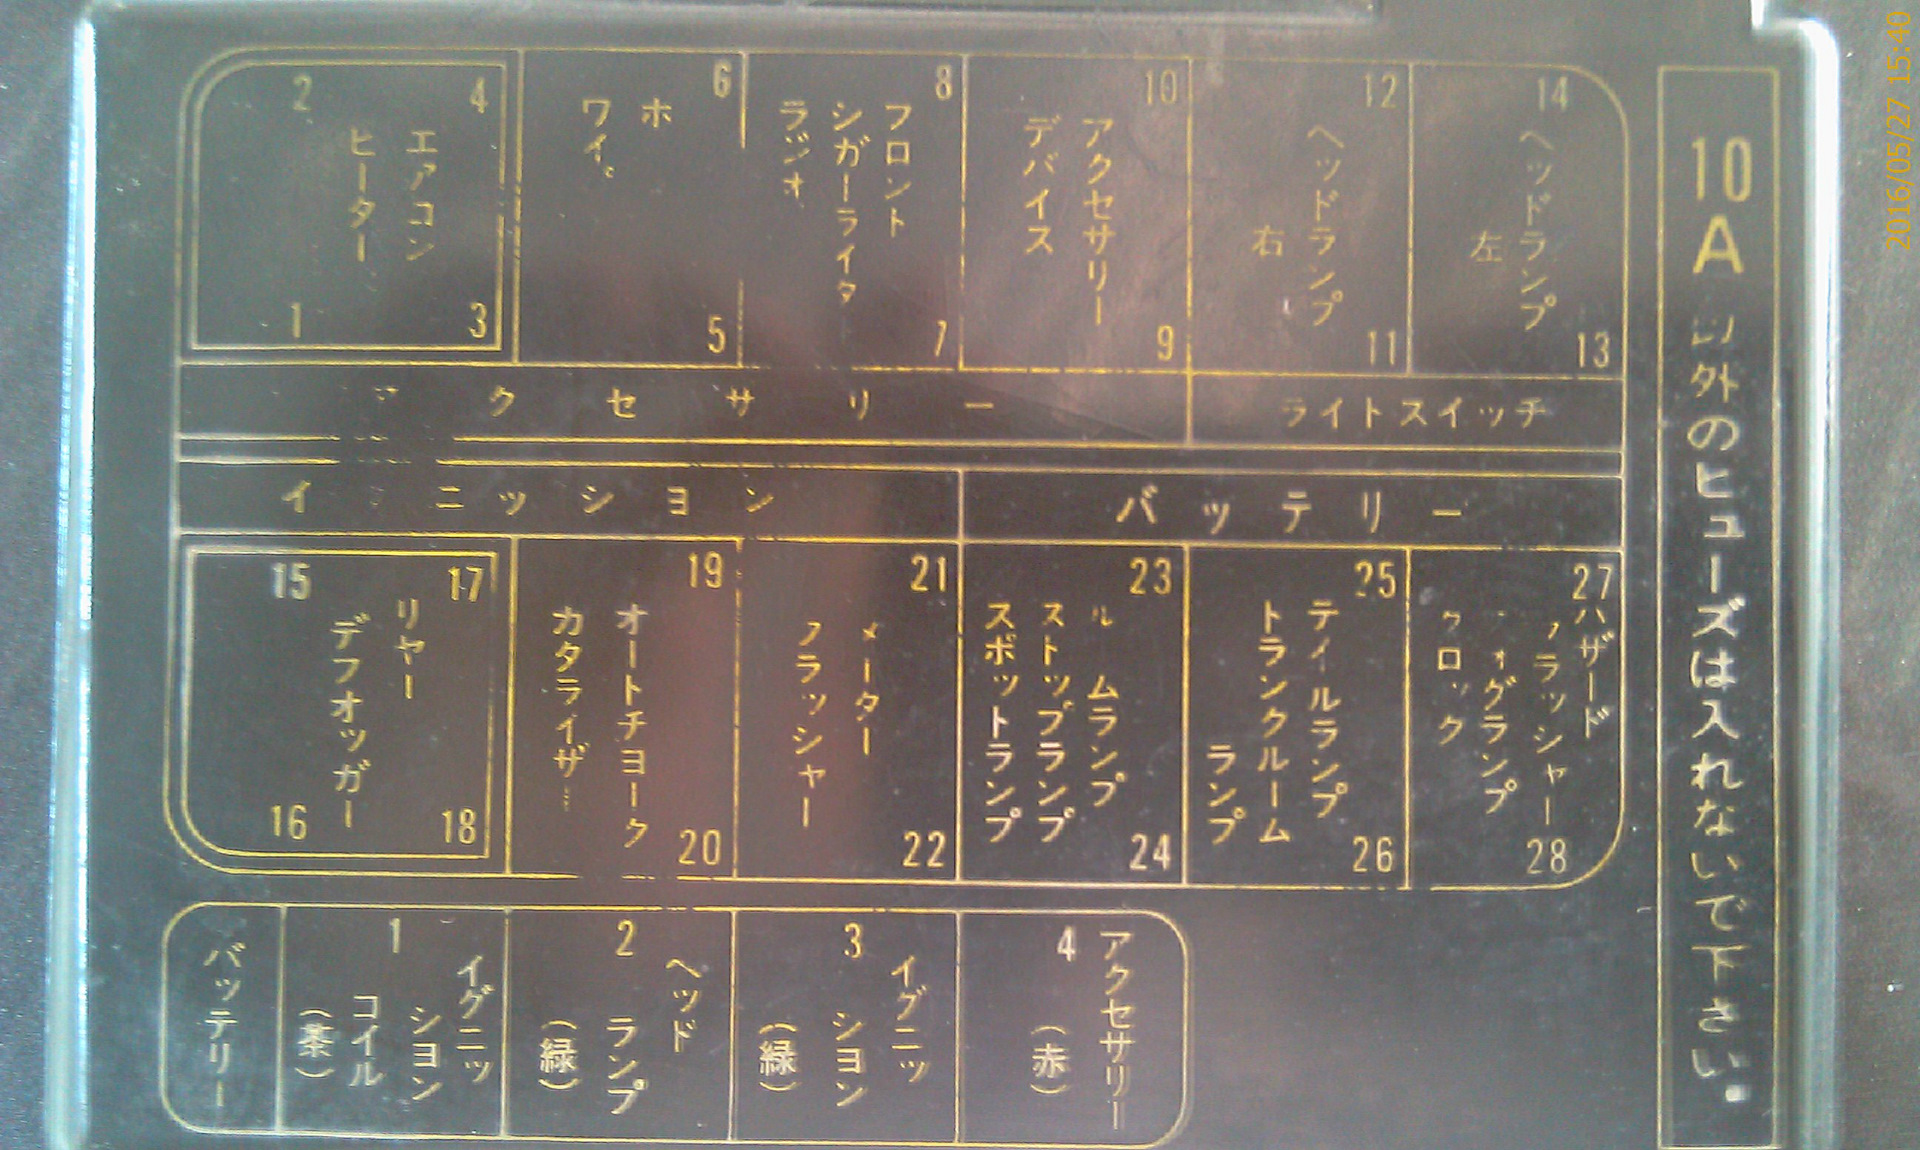 2
4
エアコン
ヒーター
1
3
6
ホ
ワイ
5
8
フロント
シガーライタ
ラジオ
7
10
アクセサリー
デバイス
9
12
ヘッドランプ
右
11
14
ヘッドランプ
左
13
クセサリー
ライトスイッチ
イ ニッション
バッテリー
15
17
リヤー
デフオッガー
16
18
19
オートチョーク
カタライザ
20
21
メーター
フラッシャー
22
23
ル ムランプ
ストップランプ
スポットランプ
24
25
テイルランプ
トランクルーム
ランプ
26
27
ハザード
フラッシャー
ォグランプ
クロック
28
バッテリー
1
イグニッ
ション
コイル
(茶)
2
ヘッド
ランプ
(緑)
3
イグニッ
ション
(緑)
4
アクセサリー
(赤)
10A以外のヒューズは入れないで下さい.
2016/05/27 15:40